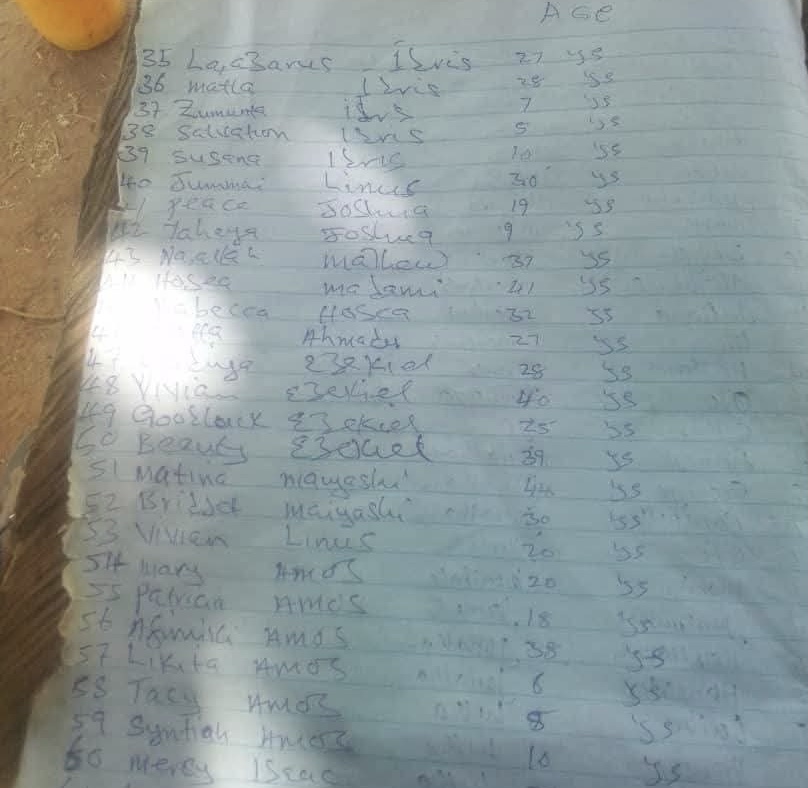 AGe
35 Lazarus Ibris 27 ys
36 matta Ibris 28 ys
37 Zumunta ibrs 7 ys
38 Salvation Ibris 5 ys
39 Susana Ibris 10 ys
40 Jummai Linus 30 ys
peace Joshua 19 ys
42 Yahaya Joshua 9 ys
43 mathew 37 ys
Hosea madami 41 ys
Hosea 32 ys
Ahmadu 27 ys
47 Ezekiel 28 ys
48 Vivian Ezekiel 40 ys
49 Goodluck Ezekiel 25 ys
50 Beauty Ezekiel 39 ys
51 Matina maiyashi 44 ys
52 Bridget maiyashi 30 ys
53 Vivian Linus 20 ys
54 mary AMOS 20 ys
55 patrian AMOS 18 ys
56 AMOS 38 ys
57 Likita AMOS 6 ys
58 Tacy AMOS 8 ys
59 Syntiah AMOS 10
60 mercy Iseac ys